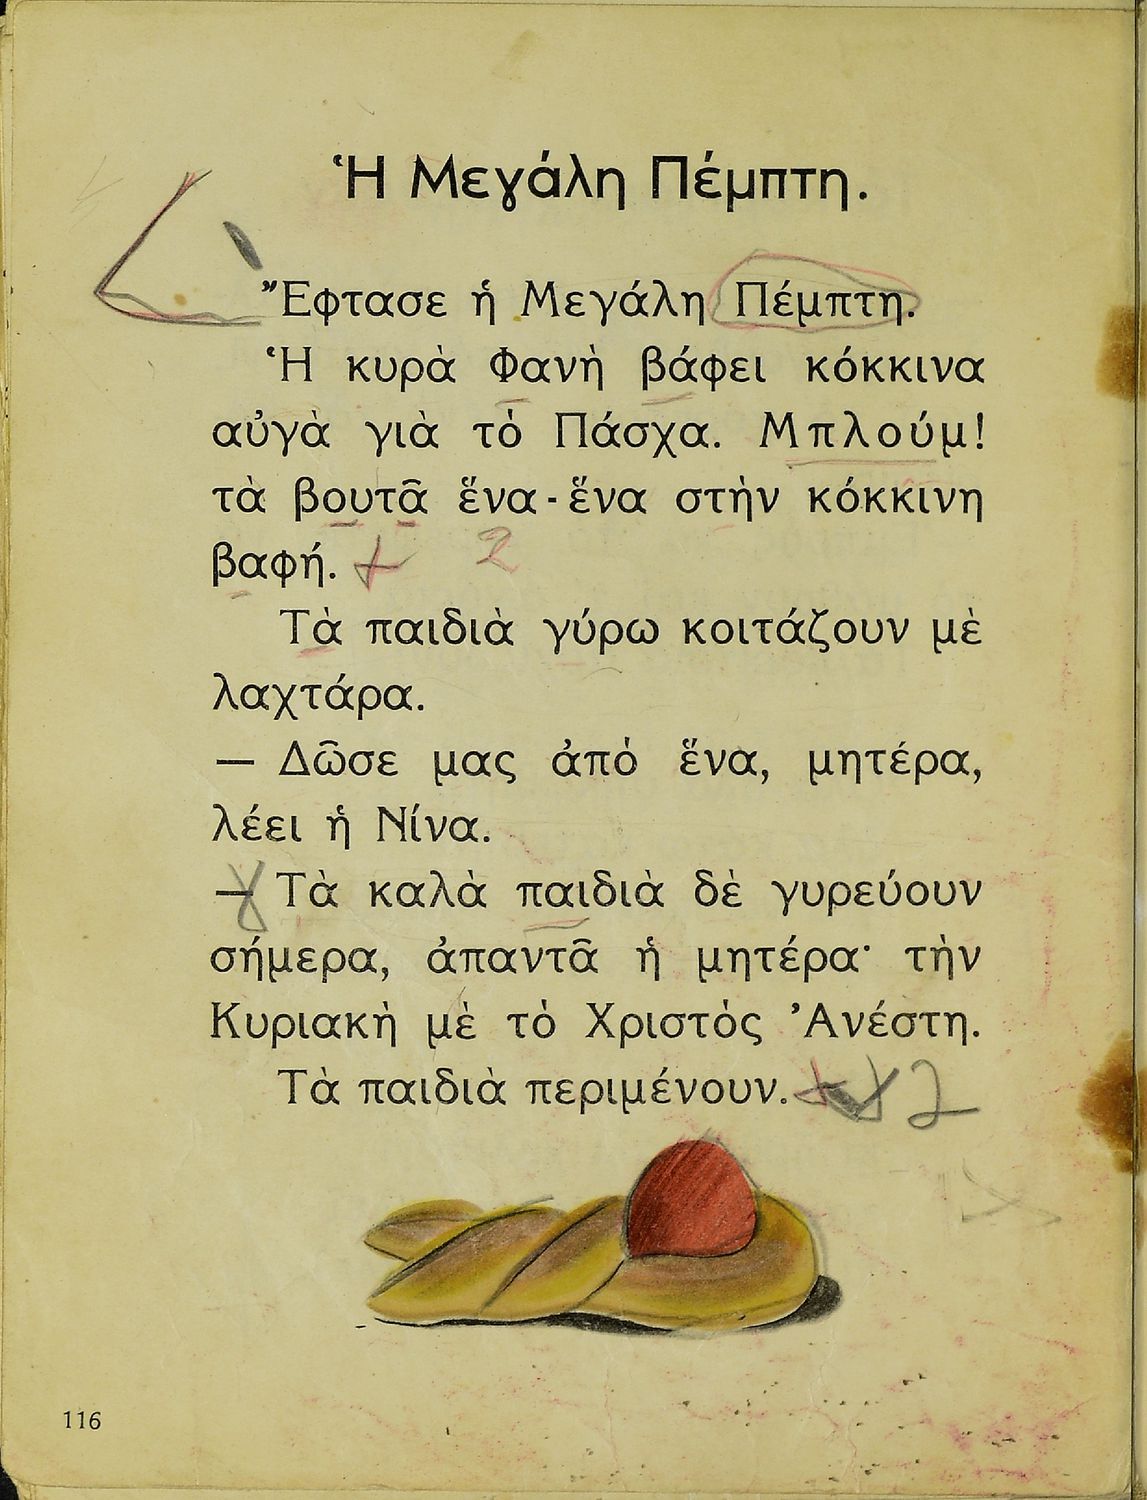 Ἡ Μεγάλη Πέμπτη.
Ἔφτασε ἡ Μεγάλη Πέμπτη.
Ἡ κυρὰ Φανὴ βάφει κόκκινα
αὐγὰ γιὰ τὸ Πάσχα. Μπλούμ!
τὰ βουτᾶ ἕνα-ἕνα στὴν κόκκινη
βαφή. + 2
Τὰ παιδιὰ γύρω κοιτάζουν μὲ
λαχτάρα.
— Δῶσε μας ἀπὸ ἕνα, μητέρα,
λέει ἡ Νίνα.
— Τὰ καλὰ παιδιὰ δὲ γυρεύουν
σήμερα, ἀπαντᾶ ἡ μητέρα· τὴν
Κυριακὴ μὲ τὸ Χριστὸς Ἀνέστη.
Τὰ παιδιὰ περιμένουν. 2
116